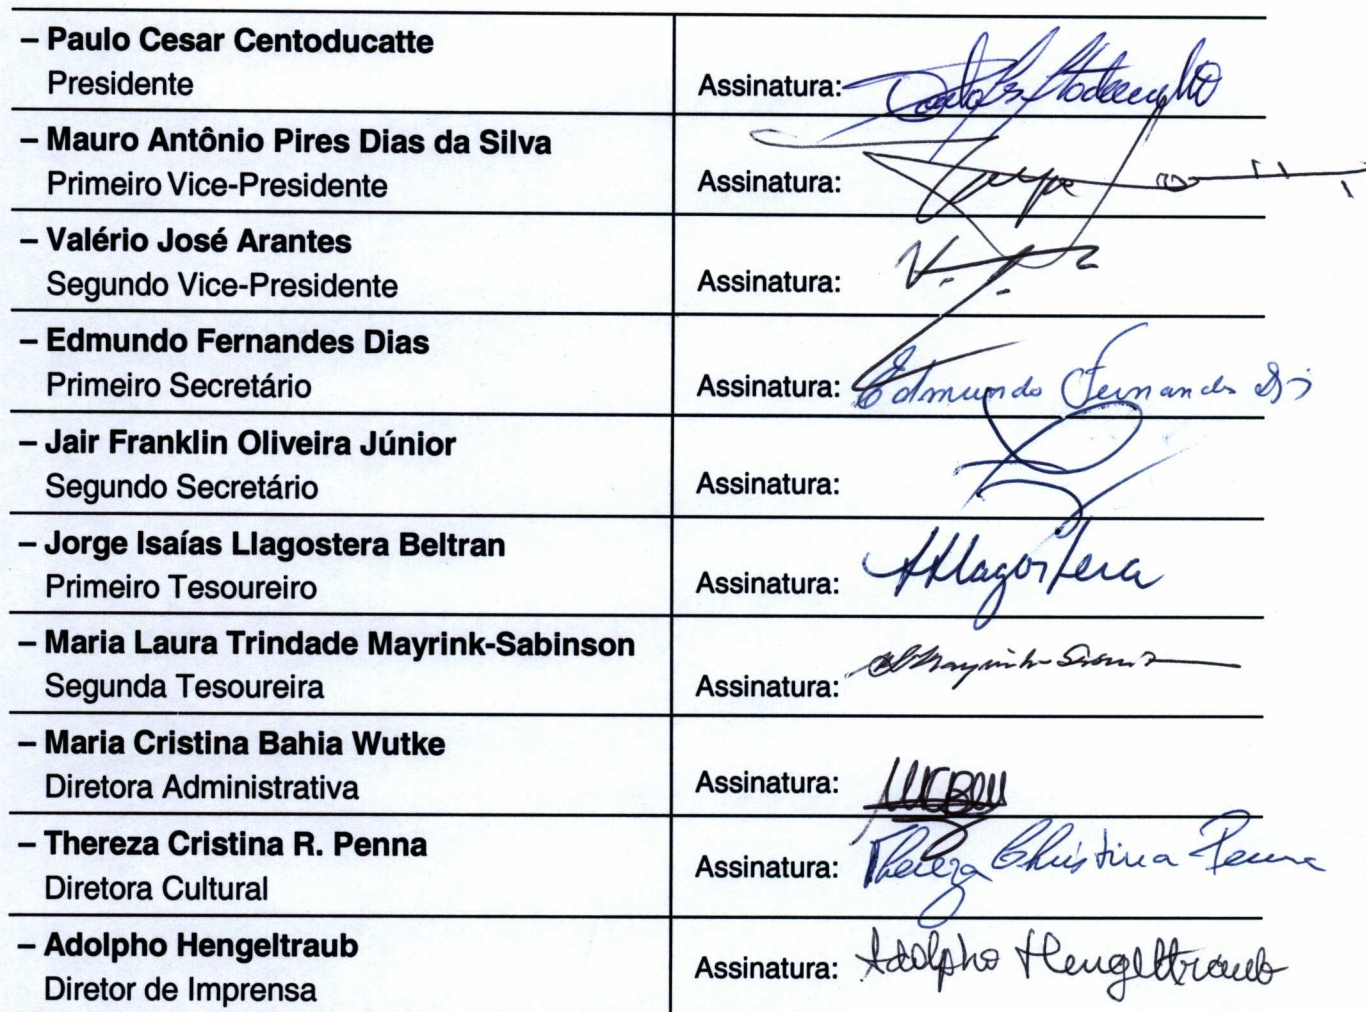 – Paulo Cesar Centoducatte
Presidente
Assinatura:
– Mauro Antônio Pires Dias da Silva
Primeiro Vice-Presidente
Assinatura:
– Valério José Arantes
Segundo Vice-Presidente
Assinatura:
– Edmundo Fernandes Dias
Primeiro Secretário
Assinatura: Edmundo Fernandes
– Jair Franklin Oliveira Júnior
Segundo Secretário
Assinatura:
– Jorge Isaías Llagostera Beltran
Primeiro Tesoureiro
Assinatura: Llagostera
– Maria Laura Trindade Mayrink-Sabinson
Segunda Tesoureira
Assinatura:
– Maria Cristina Bahia Wutke
Diretora Administrativa
Assinatura:
– Thereza Cristina R. Penna
Diretora Cultural
Assinatura: Thereza Christina Penna
– Adolpho Hengeltraub
Diretor de Imprensa
Assinatura: Adolpho Hengeltraub